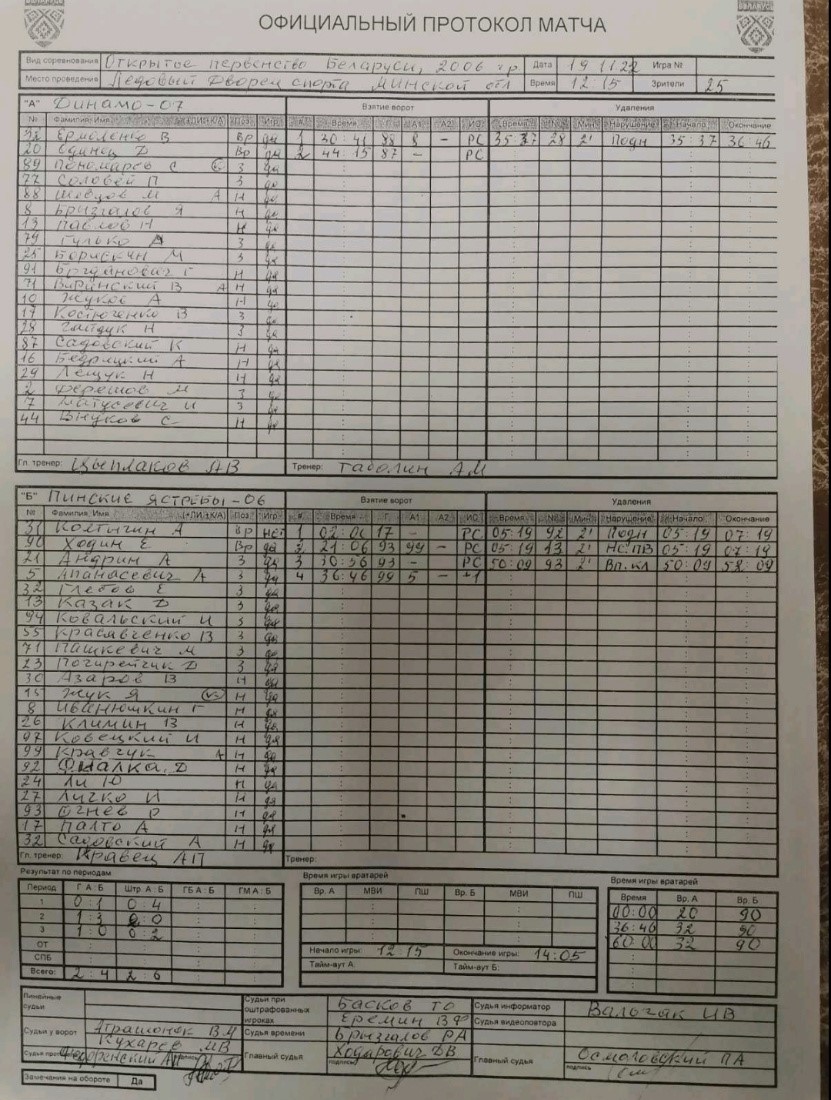 ОФИЦИАЛЬНЫЙ ПРОТОКОЛ МАТЧА
Вид соревнования Открытое первенство Беларуси, 2006 гр Дата 19 11 22 Игра №
Место проведения Ледовый дворец спорта Минской обл Время 12:15 Зрители 25
"А" Динамо-07 Взятие ворот Удаления
№ Фамилия, Имя Поз Игр # Время Г А1 А2 ИС Время № Мин Нарушение Начало Окончание
32 Ермоленко В Вр да 1 30:41 88 8 - РС 35:37 28 2' Подн 35:37 36:46
20 Единец Д Вр да 2 44:15 87 - РС
89 Пономарев С З да
77 Соловей П З да
88 Шевцов М А Н да
8 Брызгалов Я Н да
13 Павлов Н Н да
79 Гулько А З да
25 Борискин М З да
91 Богданович Г Н да
71 Н да
10 Жуков А Н да
17 Костюченко В З да
28 Н З да
87 Садовский К Н да
16 Бедрицкий А Н да
29 Лещук Н Н да
2 М З да
7 Матусевич И З да
44 Внуков С Н да
Гл. тренер: Цыплаков АВ Тренер: Таболин АМ
"Б" Пинские Ястребы-06 Взятие ворот Удаления
№ Фамилия, Имя Поз Игр # Время Г А1 А2 ИС Время № Мин Нарушение Начало Окончание
31 Колтыгин А Вр нет 1 17 - РС 05:19 92 2' Подн 05:19 07:19
90 Ходин Е Вр да 2 21:06 93 99 - РС 05:19 13 2' НС.ПВ 05:19 07:19
21 Андрин А З да 3 30:56 93 - РС 50:09 93 2' Вп.кл 50:09 58:09
5 Апанасевич А З да 4 36:46 99 5 - +1
32 Глебов Е З да
13 Казак Д З да
94 Ковальский И З да
55 Красавченко В З да
71 Пашкевич М З да
23 Погирейчик Д З да
30 Азаров В Н да
15 Жук Я Н да
8 Иванюшкин Г Н да
26 Климин В Н да
97 Ковецкий И Н да
99 Кравчук А Н да
92 Фиалка Д Н да
24 Ли Ю Н да
27 Лучко И Н да
93 Огнев Р Н да
17 Палто А Н да
32 Садовский А Н да
Гл. тренер: Кравец АП Тренер:
Результат по периодам Время игры вратарей Время игры вратарей
Период Г А : Б Штр. А : Б ГБ А : Б ГМ А : Б Вр. А МВИ ПШ Вр. Б МВИ ПШ Время Вр. А Вр. Б
1 0:1 0:4 00:00 20 90
2 1:3 2:0 36:46 32 90
3 1:0 0:2 60:00 32 90
ОТ Начало игры: 12:15 Окончание игры: 14:05
СПБ Тайм-аут А: Тайм-аут Б:
Всего: 2:4 2:6
Линейные судьи Судьи при оштрафованных игроках Басков ТО Судья информатор Вальчак ИВ
Еремин ВФ Судья видеоповтора
Судьи у ворот Атрашонек ВМ Судья времени Брызгалов РА
Кухарев МВ Главный судья Ходарович ДВ Главный судья Осмоловский ПА
Федоренский АИ подпись подпись
Замечания на обороте Да